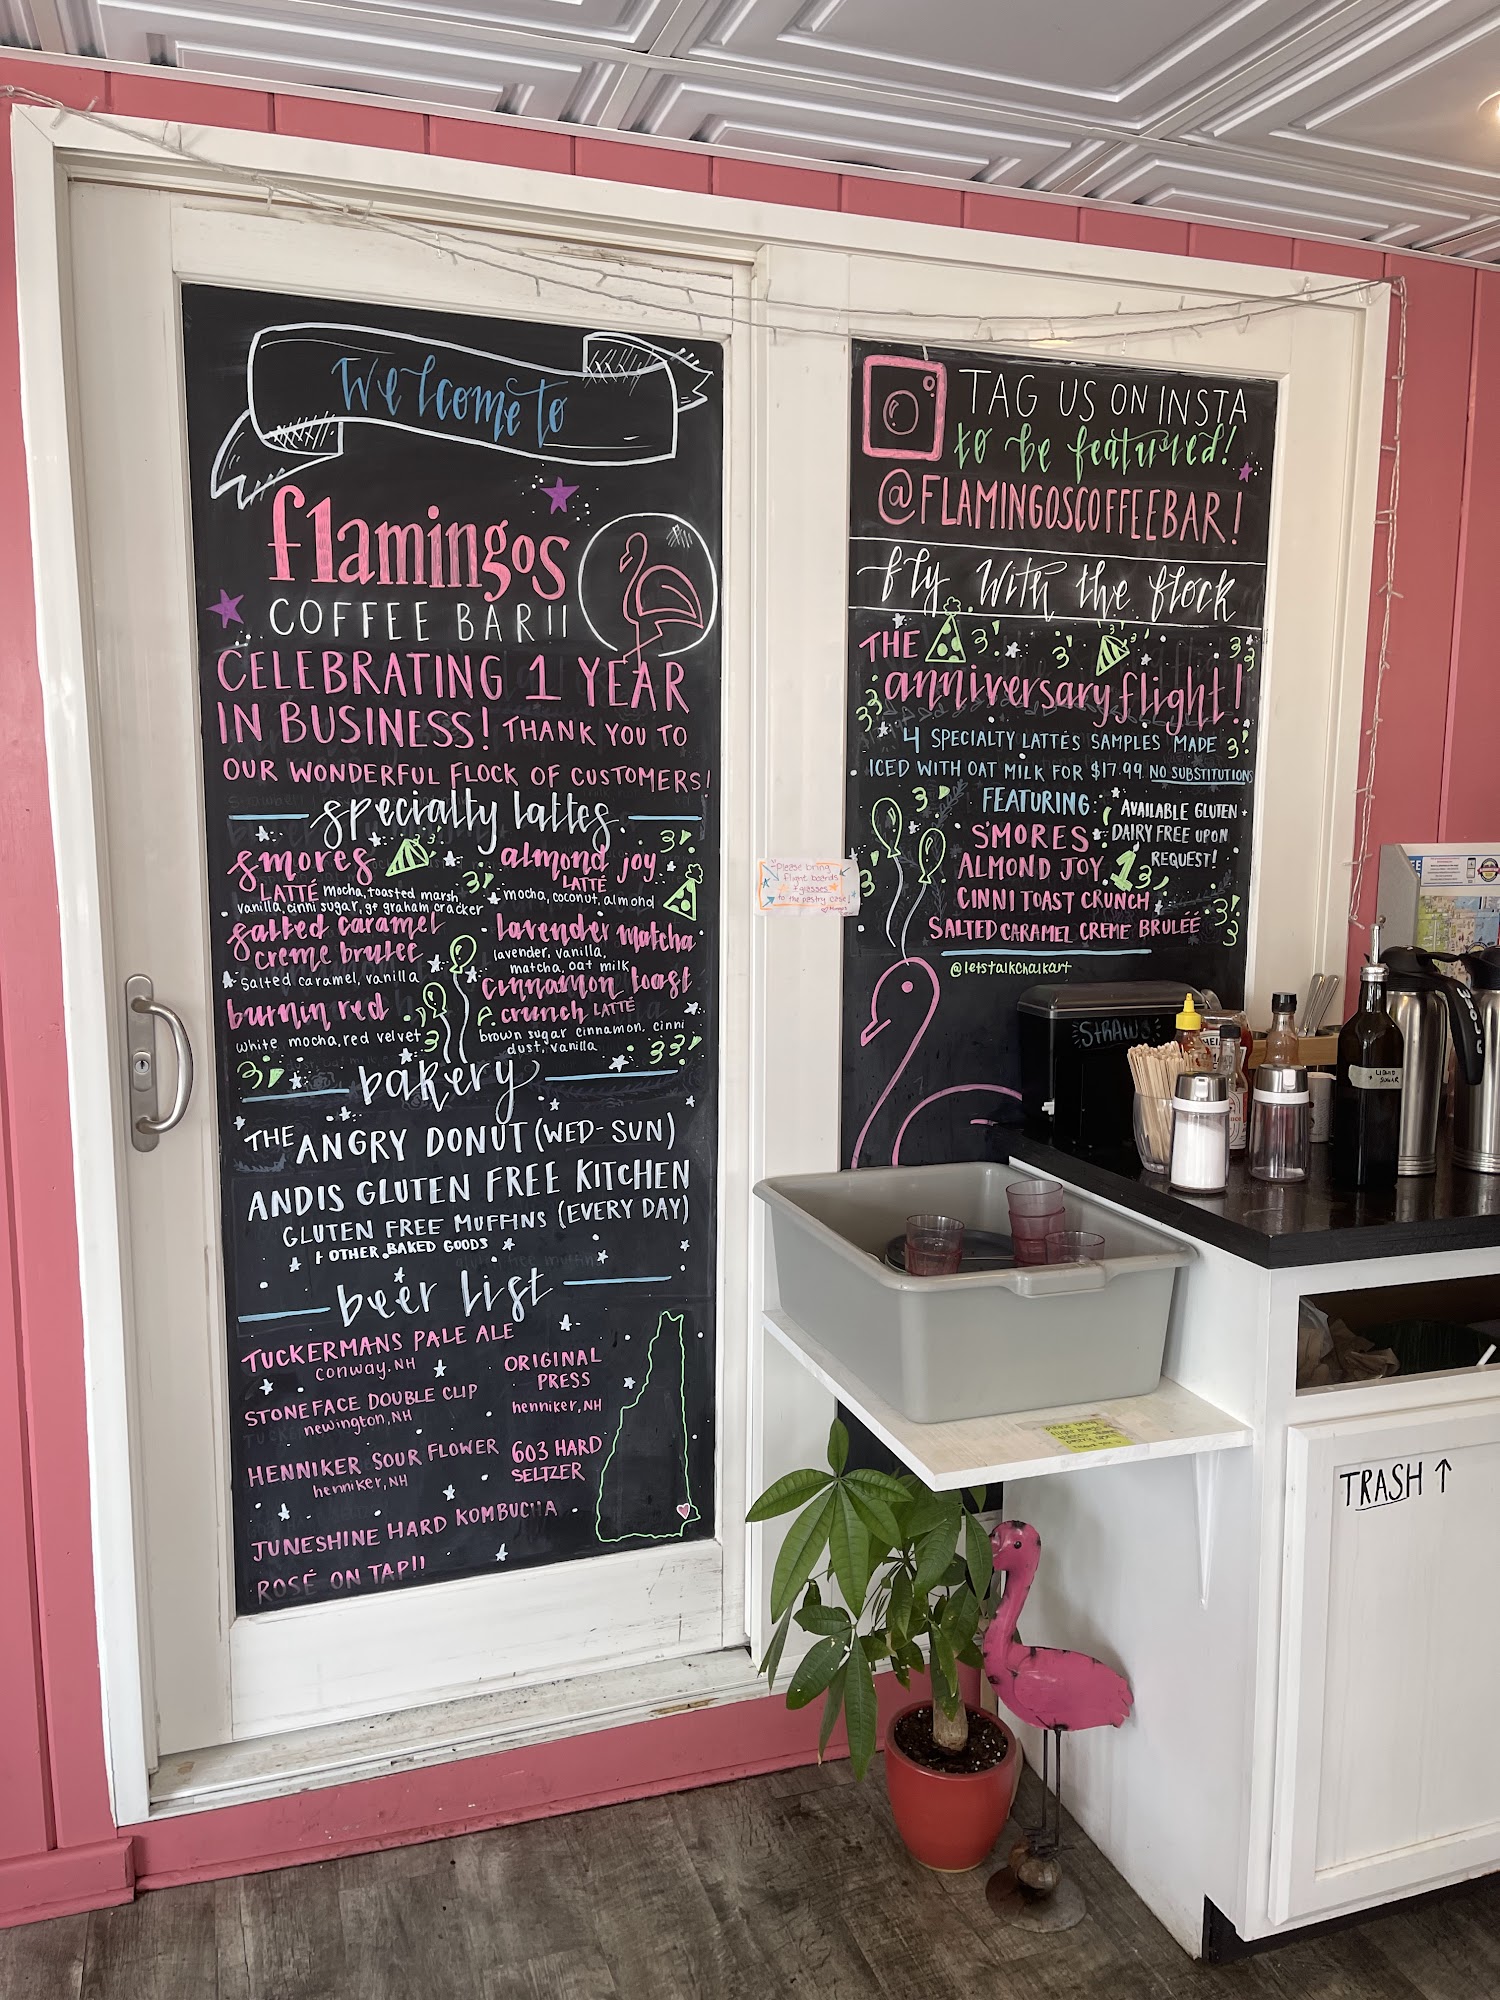 Welcome to
flamingos
COFFEE BAR!!
CELEBRATING 1 YEAR
IN BUSINESS! THANK YOU TO
OUR WONDERFUL FLOCK OF CUSTOMERS!
specialty lattes
smores
LATTÉ mocha, toasted marsh,
vanilla, cinni sugar, gf graham cracker
salted caramel
creme brulee
salted caramel, vanilla
burnin red
white mocha, red velvet
almond joy
LATTÉ
mocha, coconut, almond
lavender matcha
lavender, vanilla,
matcha, oat milk
cinnamon toast
crunch LATTÉ
brown sugar cinnamon, cinni
dust, vanilla
bakery
THE ANGRY DONUT (WED-SUN)
ANDIS GLUTEN FREE KITCHEN
GLUTEN FREE MUFFINS (EVERY DAY)
+ OTHER BAKED GOODS
beer list
TUCKERMANS PALE ALE
conway, NH
STONEFACE DOUBLE CLIP
newington, NH
HENNIKER SOUR FLOWER
henniker, NH
JUNESHINE HARD KOMBUCHA
ROSÉ ON TAP!!
ORIGINAL
PRESS
henniker, NH
603 HARD
SELTZER
Please bring
flight boards
+ glasses
to the pastry case!
TAG US ON INSTA
to be featured!
@FLAMINGOSCOFFEEBAR!
fly with the flock
THE
anniversary flight!
4 SPECIALTY LATTÉS SAMPLES MADE
ICED WITH OAT MILK FOR $17.99 NO SUBSTITUTIONS
FEATURING:
S'MORES
ALMOND JOY
CINNI TOAST CRUNCH
SALTED CARAMEL CREME BRULÉÉ
AVAILABLE GLUTEN +
DAIRY FREE UPON
REQUEST!
1
@letstalkchalkart
STRAWS
LIQUID
SUGAR
TRASH ↑